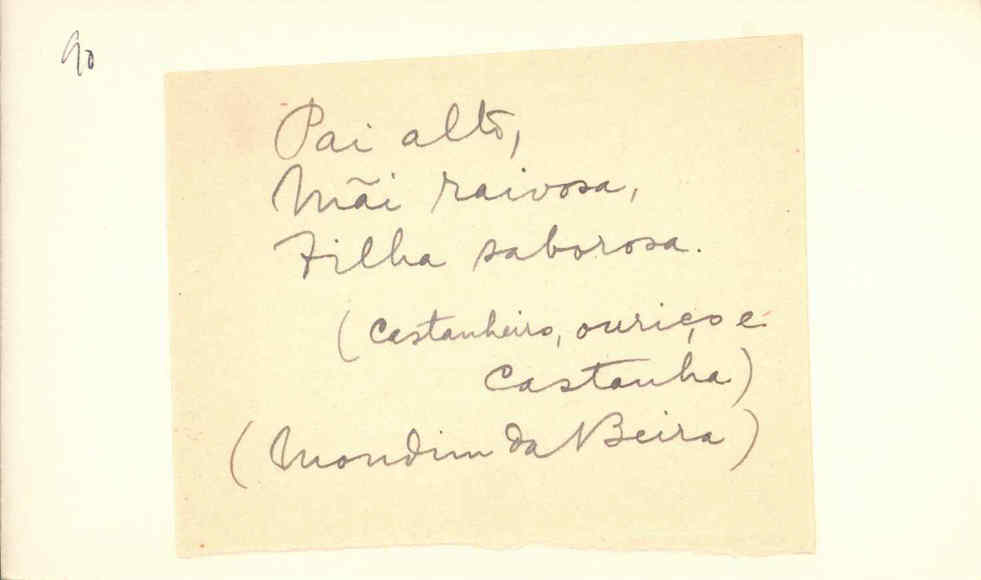 90
Pai alto,
Mãi raivosa,
Filha saborosa.
(Castanheiro, ouriço e
Castanha)
(Mondim da Beira)